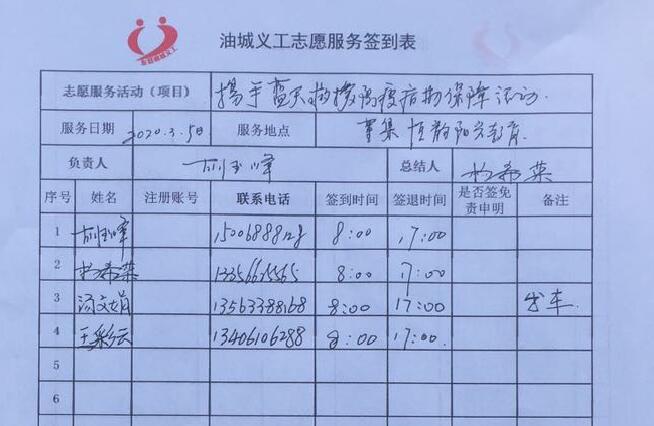 油城义工志愿服务签到表
志愿服务活动（项目） 携手蓝天救援防疫后勤保障活动.
服务日期 2020.3.5日 服务地点
负责人 总结人 杨希荣
序号 姓名 注册账号 联系电话 签到时间 签退时间 是否签免责申明 备注
1 8:00 17:00
2 杨希荣 8:00 17:00
3 汤文娟 13563388168 8:00 17:00 出车.
4 王彩云 13406106288 8:00 17:00
5
6
7